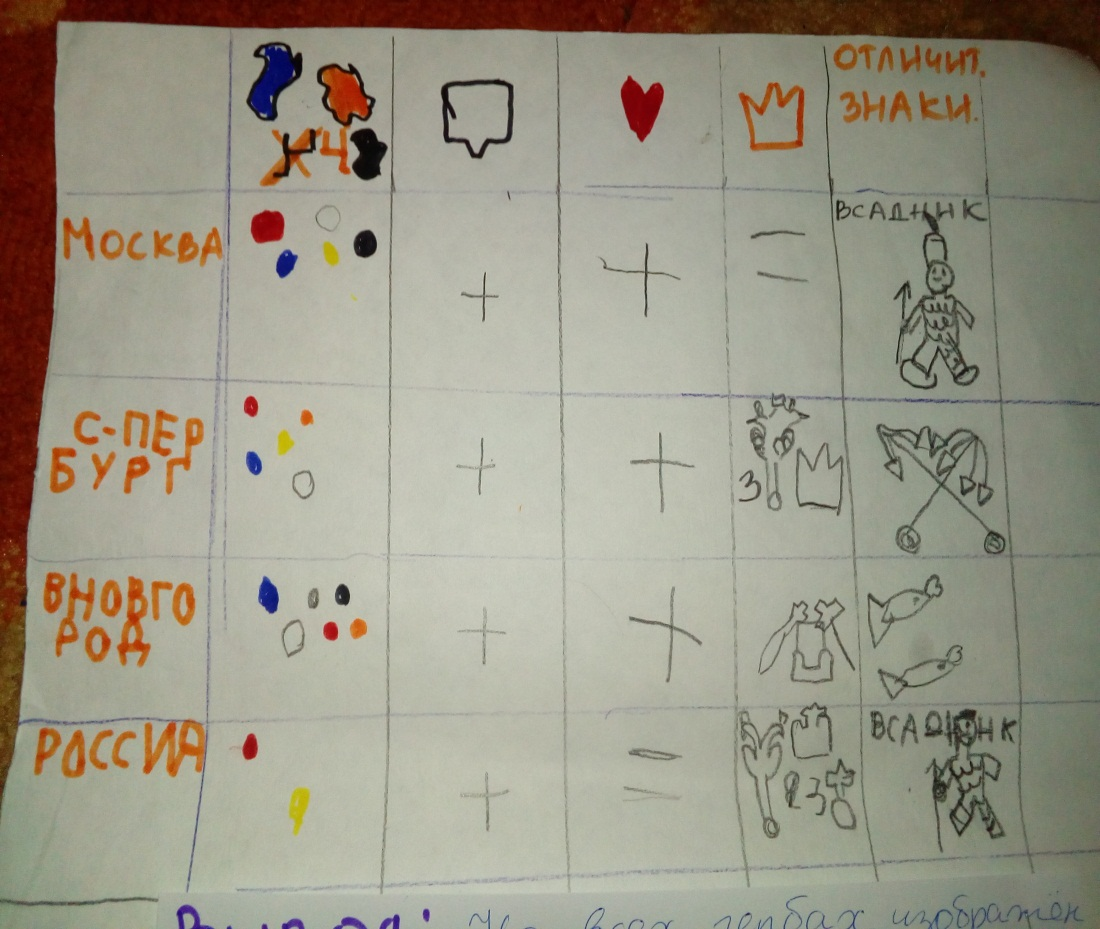 ОТЛИЧИТ.
ЗНАКИ.
МОСКВА
ВСАДНИК
С-ПЕР
БУРГ
3
ВНОВГО
РОД
РОССИЯ
ВСАДНИК
3
На всех гербах изображён